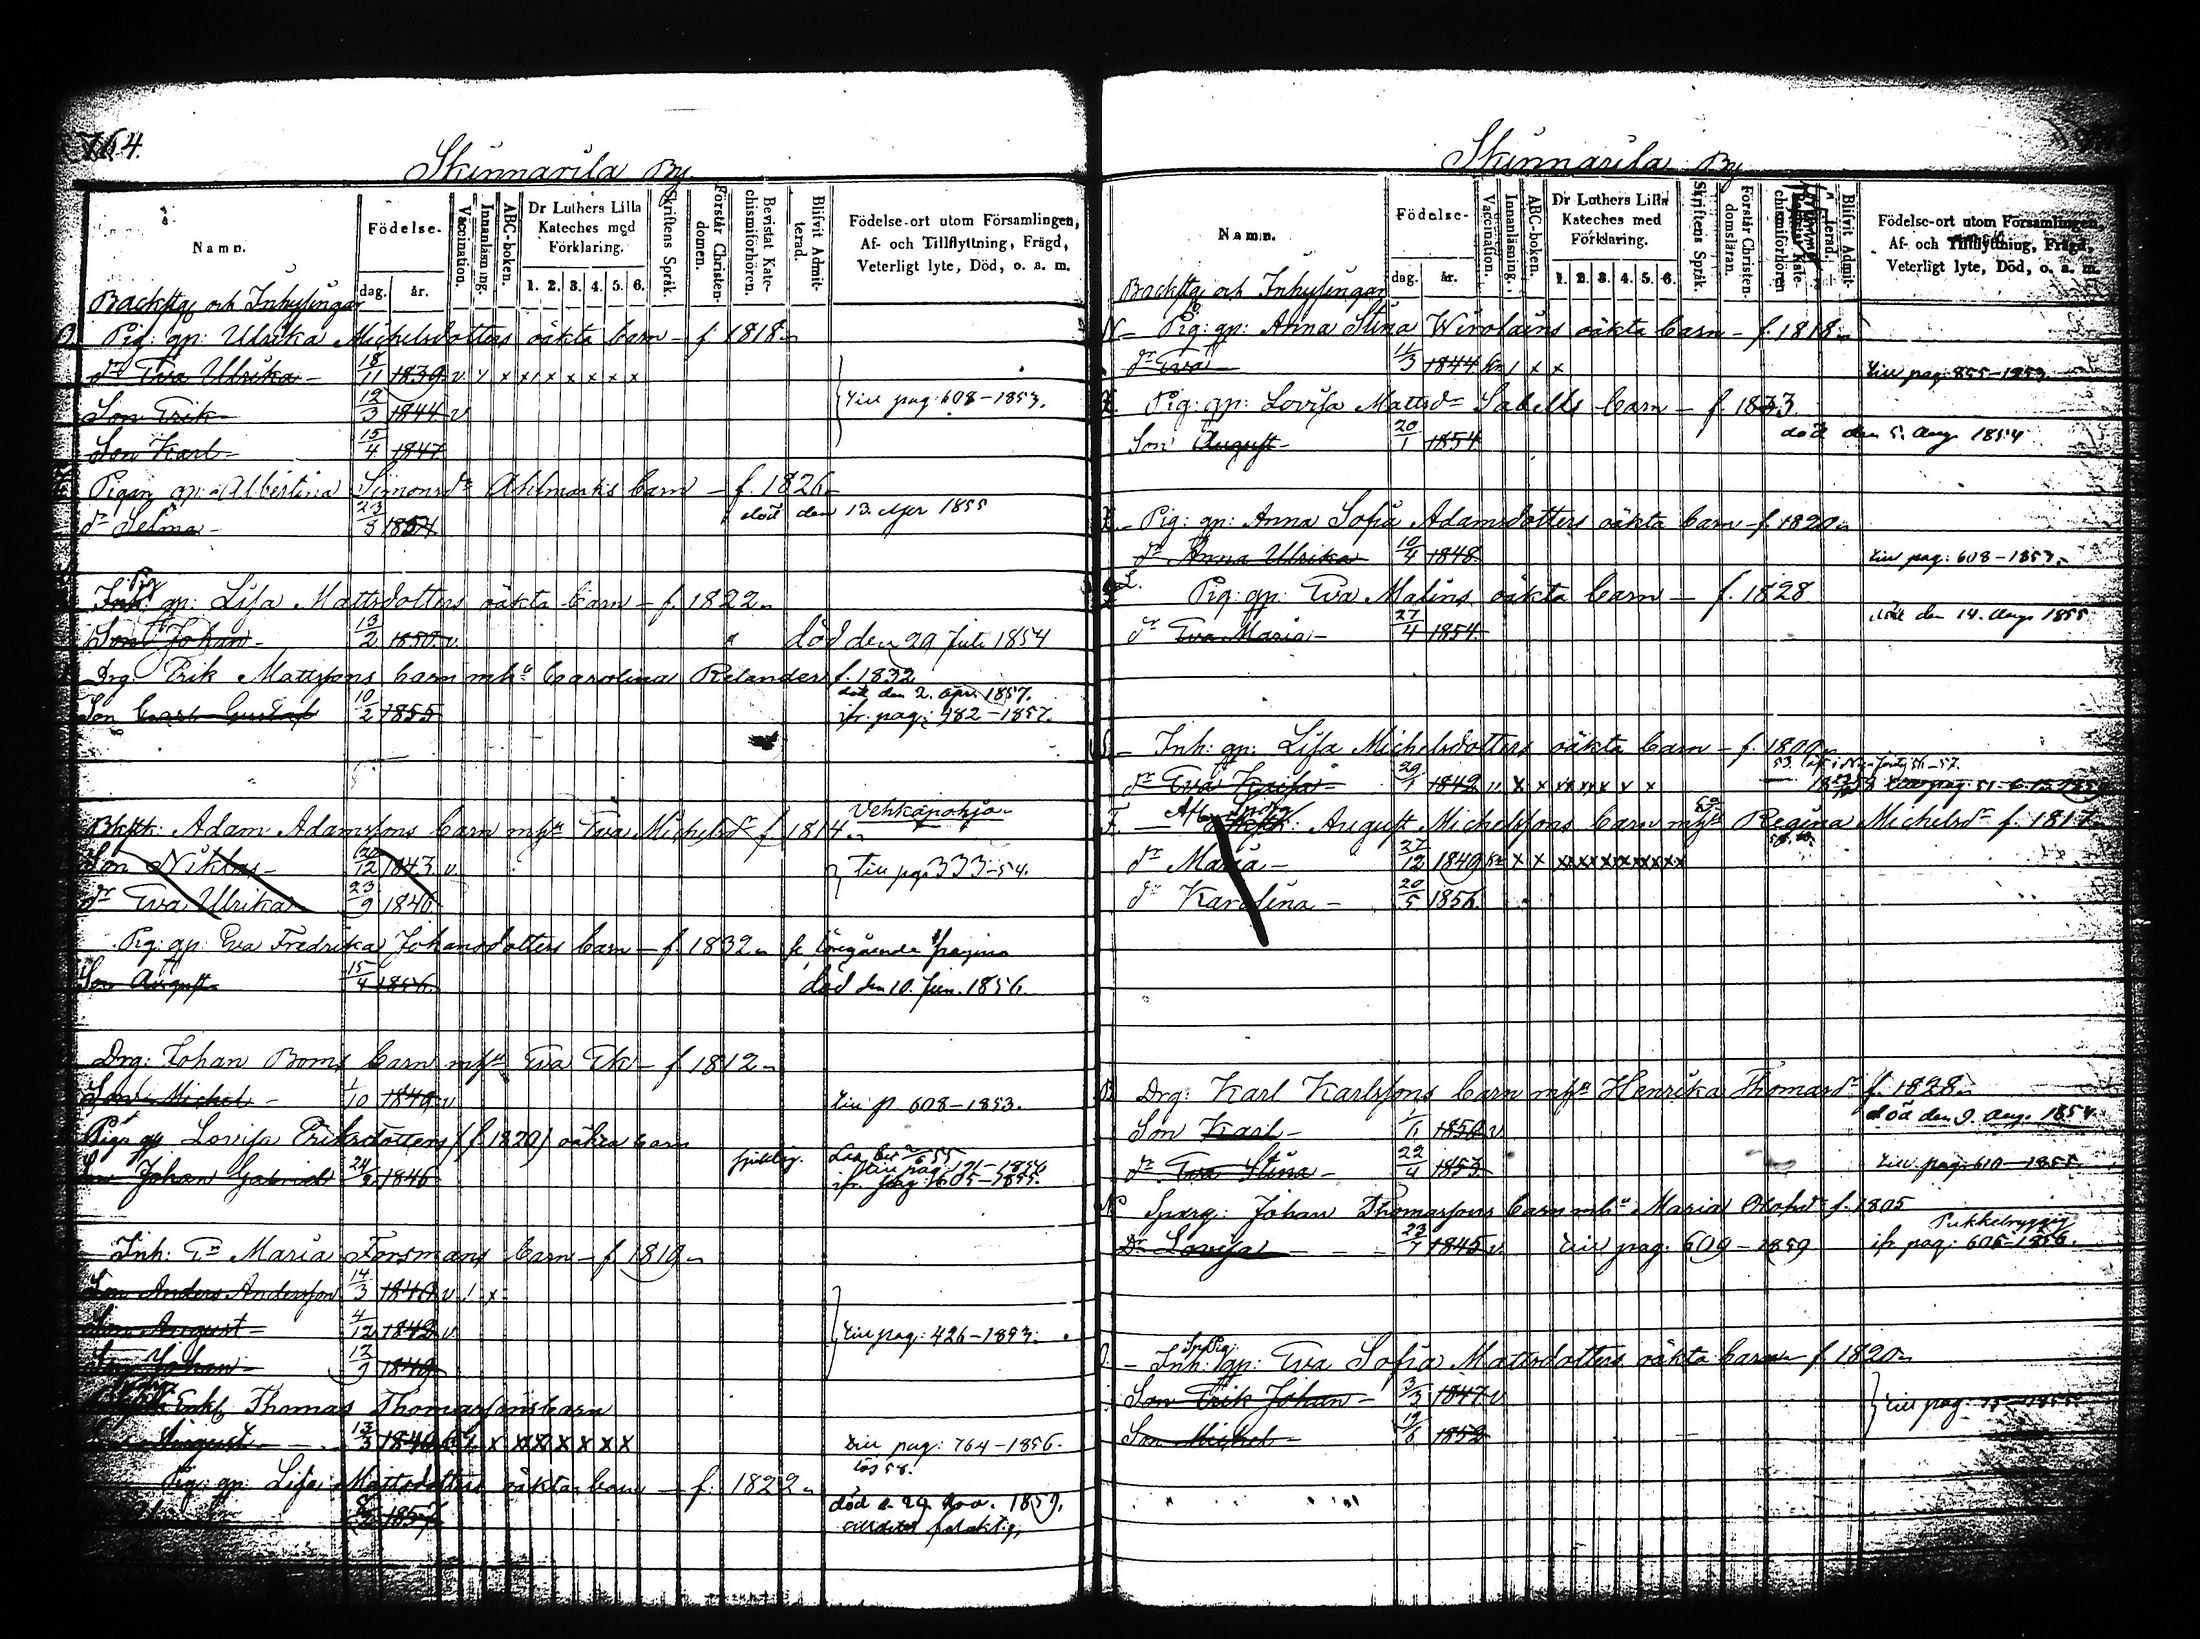 764.
Skinnarila By
Namn.
Födelse-
dag. år.
Vaccination.
Innanläsning.
ABC-boken.
Dr Luthers Lilla Kateches med Förklaring.
1. 2. 3. 4. 5. 6.
Skriftens Språk.
Förstår Christen-domen.
Bevistat Kate-chismiförhören.
Blifvit Admit-terad.
Födelse-ort utom Församlingen, Af- och Tillflyttning, Frägd, Veterligt lyte, Död, o. s. m.
Backstg och Inhysingar
Pig: gp: Ulrika Michelsdotters oäkta barn – f 1818
dr Eva Ulrika – 18/11 1839 v x x x x x x x x
Son Erik 12/3 1844 v till pag: 608–1853.
Son Karl – 15/4 1847
Pigan gp: Albertina Simonsdr Ahlmarks barn – f. 1826
dr Selma – 23/3 1854 död den 13. Apr 1855
Pig gp: Lisa Mattsdotters oäkta barn – f. 1822
Son Johan – 13/2 1850 v död den 29 Juli 1854
Drg: Erik Mattssons barn mhu Carolina Relander f. 1832
död den 2. Apr. 1857.
Son Carl Gustaf 10/2 1855 ifr. pag: 482–1857.
Vehkapohja
Bkstk: Adam Adamssons barn mhu Eva Michelsdr f 1814
Son Niklas – 20/12 1843 v till pag 333–54.
dr Eva Ulrika 23/9 1846
Pig: gp: Eva Fredrika Johansdotters barn – f. 1832 se föregående pagina
Son August 15/4 1856 död den 10. Jun. 1856
Drg: Johan Boms barn mhu Eva Ek – f 1812
Son Michel – 1/10 1849 v till p 608–1853.
Piga gp Lovisa Eriksdotters (f. 1820) oäkta barn
Son Johan Gabriel 24/2 1846 ifr. pag: 605–1855.
Inh: Maria Forsmans barn – f 1819
Son Anders Andersson 14/3 1840 v x
Son August – 4/12 1842 v till pag: 426–1853.
Son Johan – 12/9 1849
Enkl Thomas Thomassons barn
August – 13/3 1840 x x x x x x x x till pag: 764–1856.
Pig: gp: Lisa Mattsdotters oäkta barn – f. 1822
1857 död d. 29. Nov. 1859.
Skinnarila By
Namn.
Födelse-
dag. år.
Vaccination.
Innanläsning.
ABC-boken.
Dr Luthers Lilla Kateches med Förklaring.
1. 2. 3. 4. 5. 6.
Skriftens Språk.
Förstår Christen-domsläran.
chismiförhören
Blifvit Admit-terad.
Födelse-ort utom Församlingen, Af- och Tillflyttning, Frägd, Veterligt lyte, Död, o. s. m.
Backstg och Inhysingar
N – Pig: gp: Anna Stina Wirolains oäkta barn – f. 1818
dr Eva 11/3 1844 x x till pag: 855–1853
Pig: gp: Lovisa Mattsdr Sabells barn – f. 1833
Son August – 20/1 1854 död den 5. Aug 1854
Pig: gp: Anna Sofia Adamsdotters oäkta barn – f. 1820
dr Anna Ulrika 10/4 1848 till pag: 608–1853.
Pig: gp: Eva Malins oäkta barn – f. 1828
dr Eva Maria – 27/4 1854 död den 14. Aug 1855
Inh: gp: Lisa Michelsdotters oäkta barn – f. 1800
dr Eva Kaisa – 29/1 1842 v x x x x x x x x
F. – August Michelssons barn mhu Regina Michelsdr f. 1817
dr Maria – 27/12 1849 x x x x x x x x x
dr Karolina – 20/5 1856
Drg: Karl Karlssons barn mhu Henrika Thomasdr f. 1828
Son Karl – 1/11 1850 v död den 9. Aug. 1854
dr Eva Stina – 22/4 1853 till pag: 610–1855.
N Sparg: Johan Thomassons barn mhu Maria Olofsdr f. 1805
Pukkelryggig
Dr Lovisa – 23/7 1845 v till pag: 609–1859 ifr pag: 605–1856.
Inh: gp: Eva Sofia Mattsdotters oäkta barn – f 1820
Son Erik Johan – 3/3 1847 v till pag: 75–1855.
Son Michel – 19/6 1852